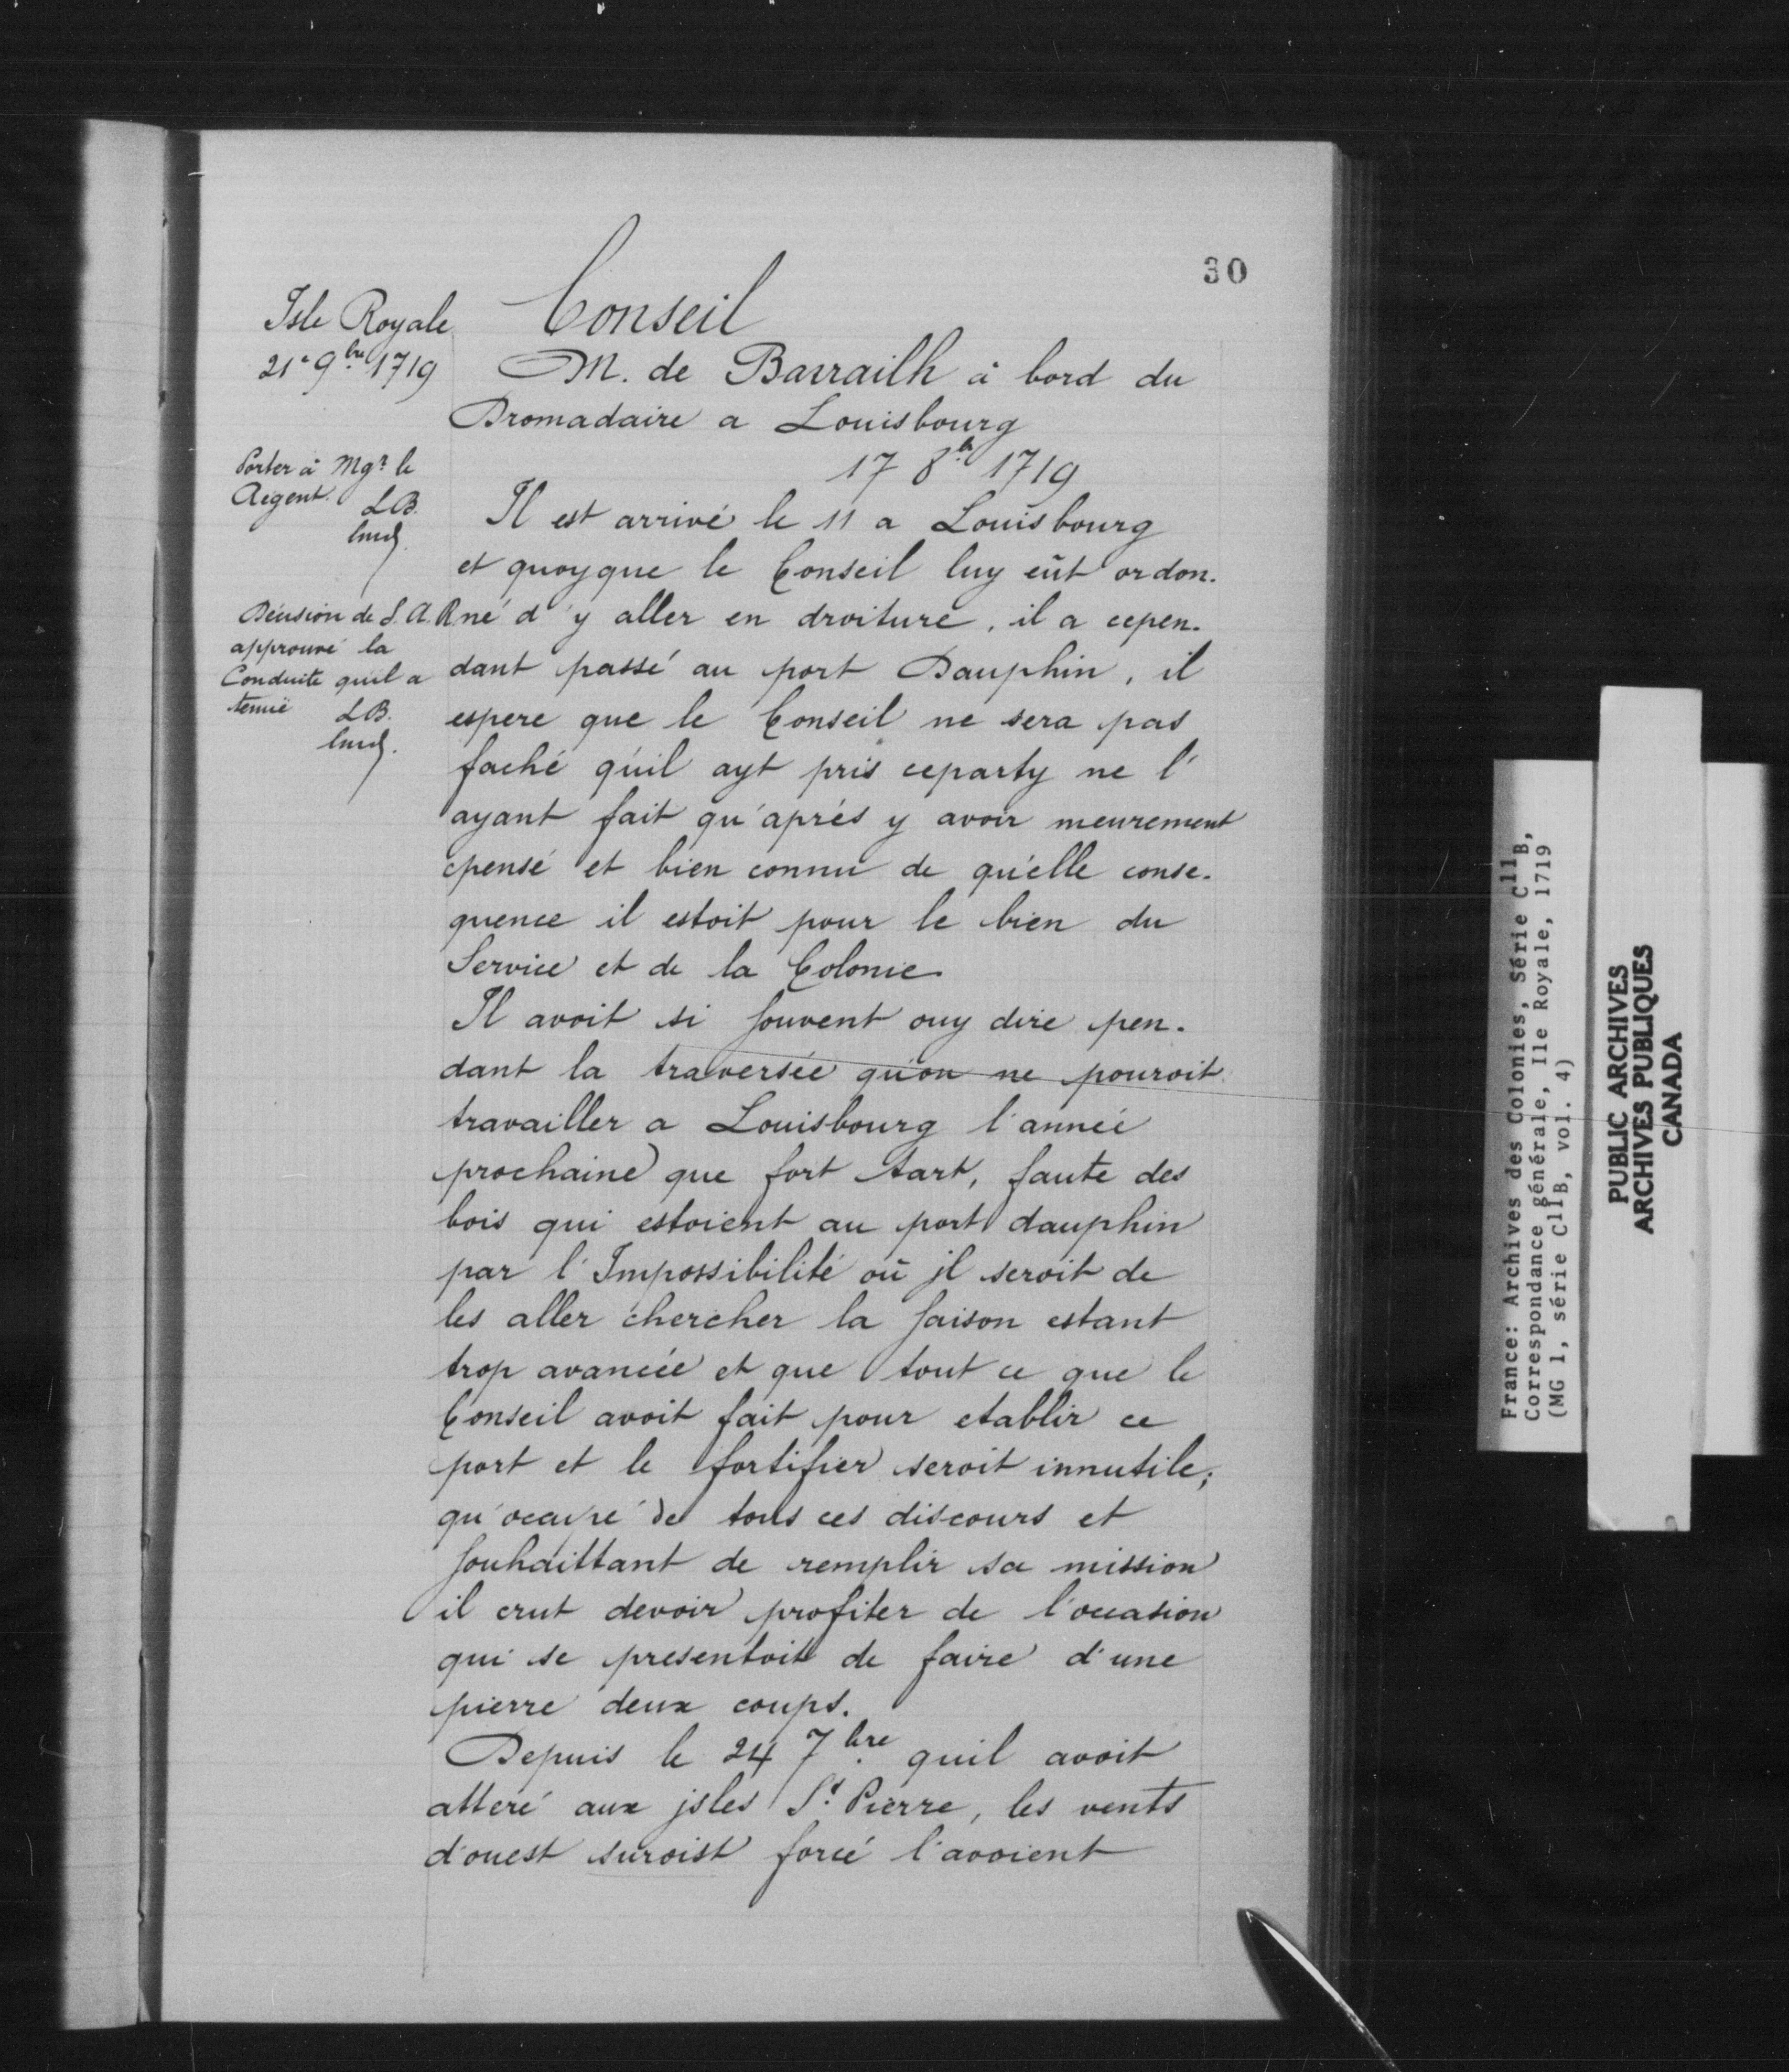 30
Conseil
Isle Royale
21e 9bre 1719
M. de Barrailh à bord du
Dromadaire a Louisbourg
17 8bre 1719
Porter à Mgr le
Regent. LB.
Il est arrivé le 11 a Louisbourg
et quoyque le Conseil luy eût ordon-
né d'y aller en droiture, il a cepen-
dant passé au port Dauphin, il
espere que le Conseil ne sera pas
faché qu'il ayt pris ceparty ne l'
ayant fait qu'aprés y avoir meurement
pensé et bien connu de qu'elle conse-
quence il estoit pour le bien du
Service et de la Colonie
Décision de S.A.R
approuvé la
Conduite qu'il a
tenuë LB.
Il avoit si souvent ouy dire pen-
dant la traversée qu'on ne pouroit
travailler a Louisbourg l'année
prochaine que fort tart, faute des
bois qui estoient au port dauphin
par l'Impossibilité où jl seroit de
les aller chercher la saison estant
trop avancée et que tout ce que le
Conseil avoit fait pour etablir ce
port et le fortifier seroit innutile;
qu'occupé de tous ces discours et
souhaittant de remplir sa mission
il crut devoir profiter de l'occasion
qui se presentoit de faire d'une
pierre deux coups.
Depuis le 24 7bre quil avoit
atteré aux jsles St Pierre, les vents
d'ouest suroist forcé l'avoient
France: Archives des Colonies, Série C11B,
Correspondance générale, Ile Royale, 1719
(MG 1, série C11B, vol. 4)
PUBLIC ARCHIVES
ARCHIVES PUBLIQUES
CANADA